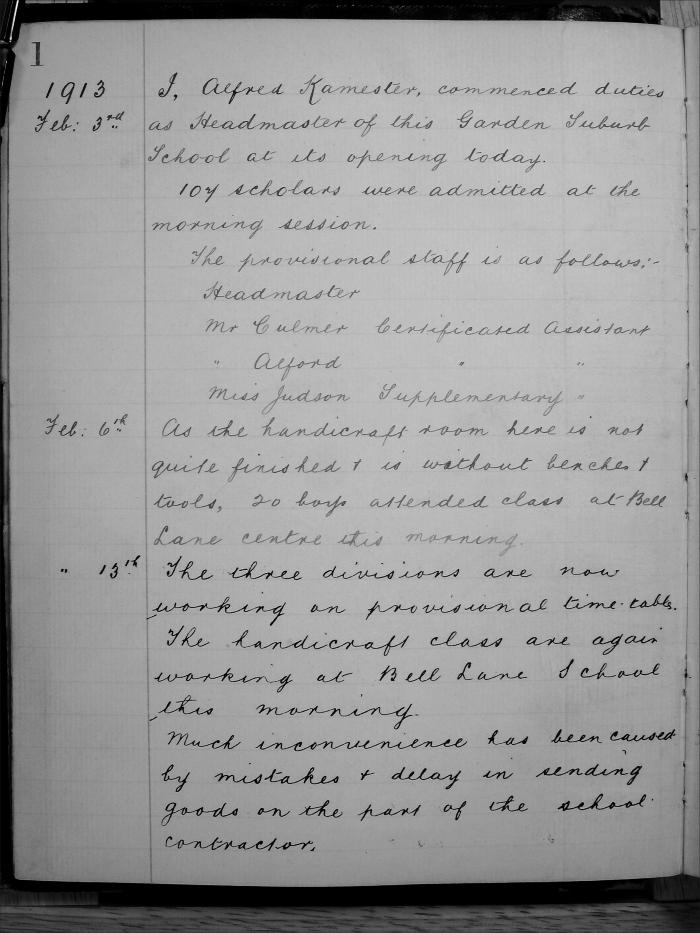 1
1913 I, Alfred Kamester, commenced duties
Feb: 3rd as Headmaster of this Garden Suburb
School at its opening today.
107 scholars were admitted at the
morning session.
The provisional staff is as follows:-
Headmaster
Mr Culmer Certificated Assistant
" Alford " "
Miss Judson Supplementary "
Feb: 6th As the handicraft room here is not
quite finished & is without benches &
tools, 20 boys attended class at Bell
Lane centre this morning.
" 13th The three divisions are now
working on provisional time-table.
The handicraft class are again
working at Bell Lane School
this morning.
Much inconvenience has been caused
by mistakes & delay in sending
goods on the part of the school
contractor.